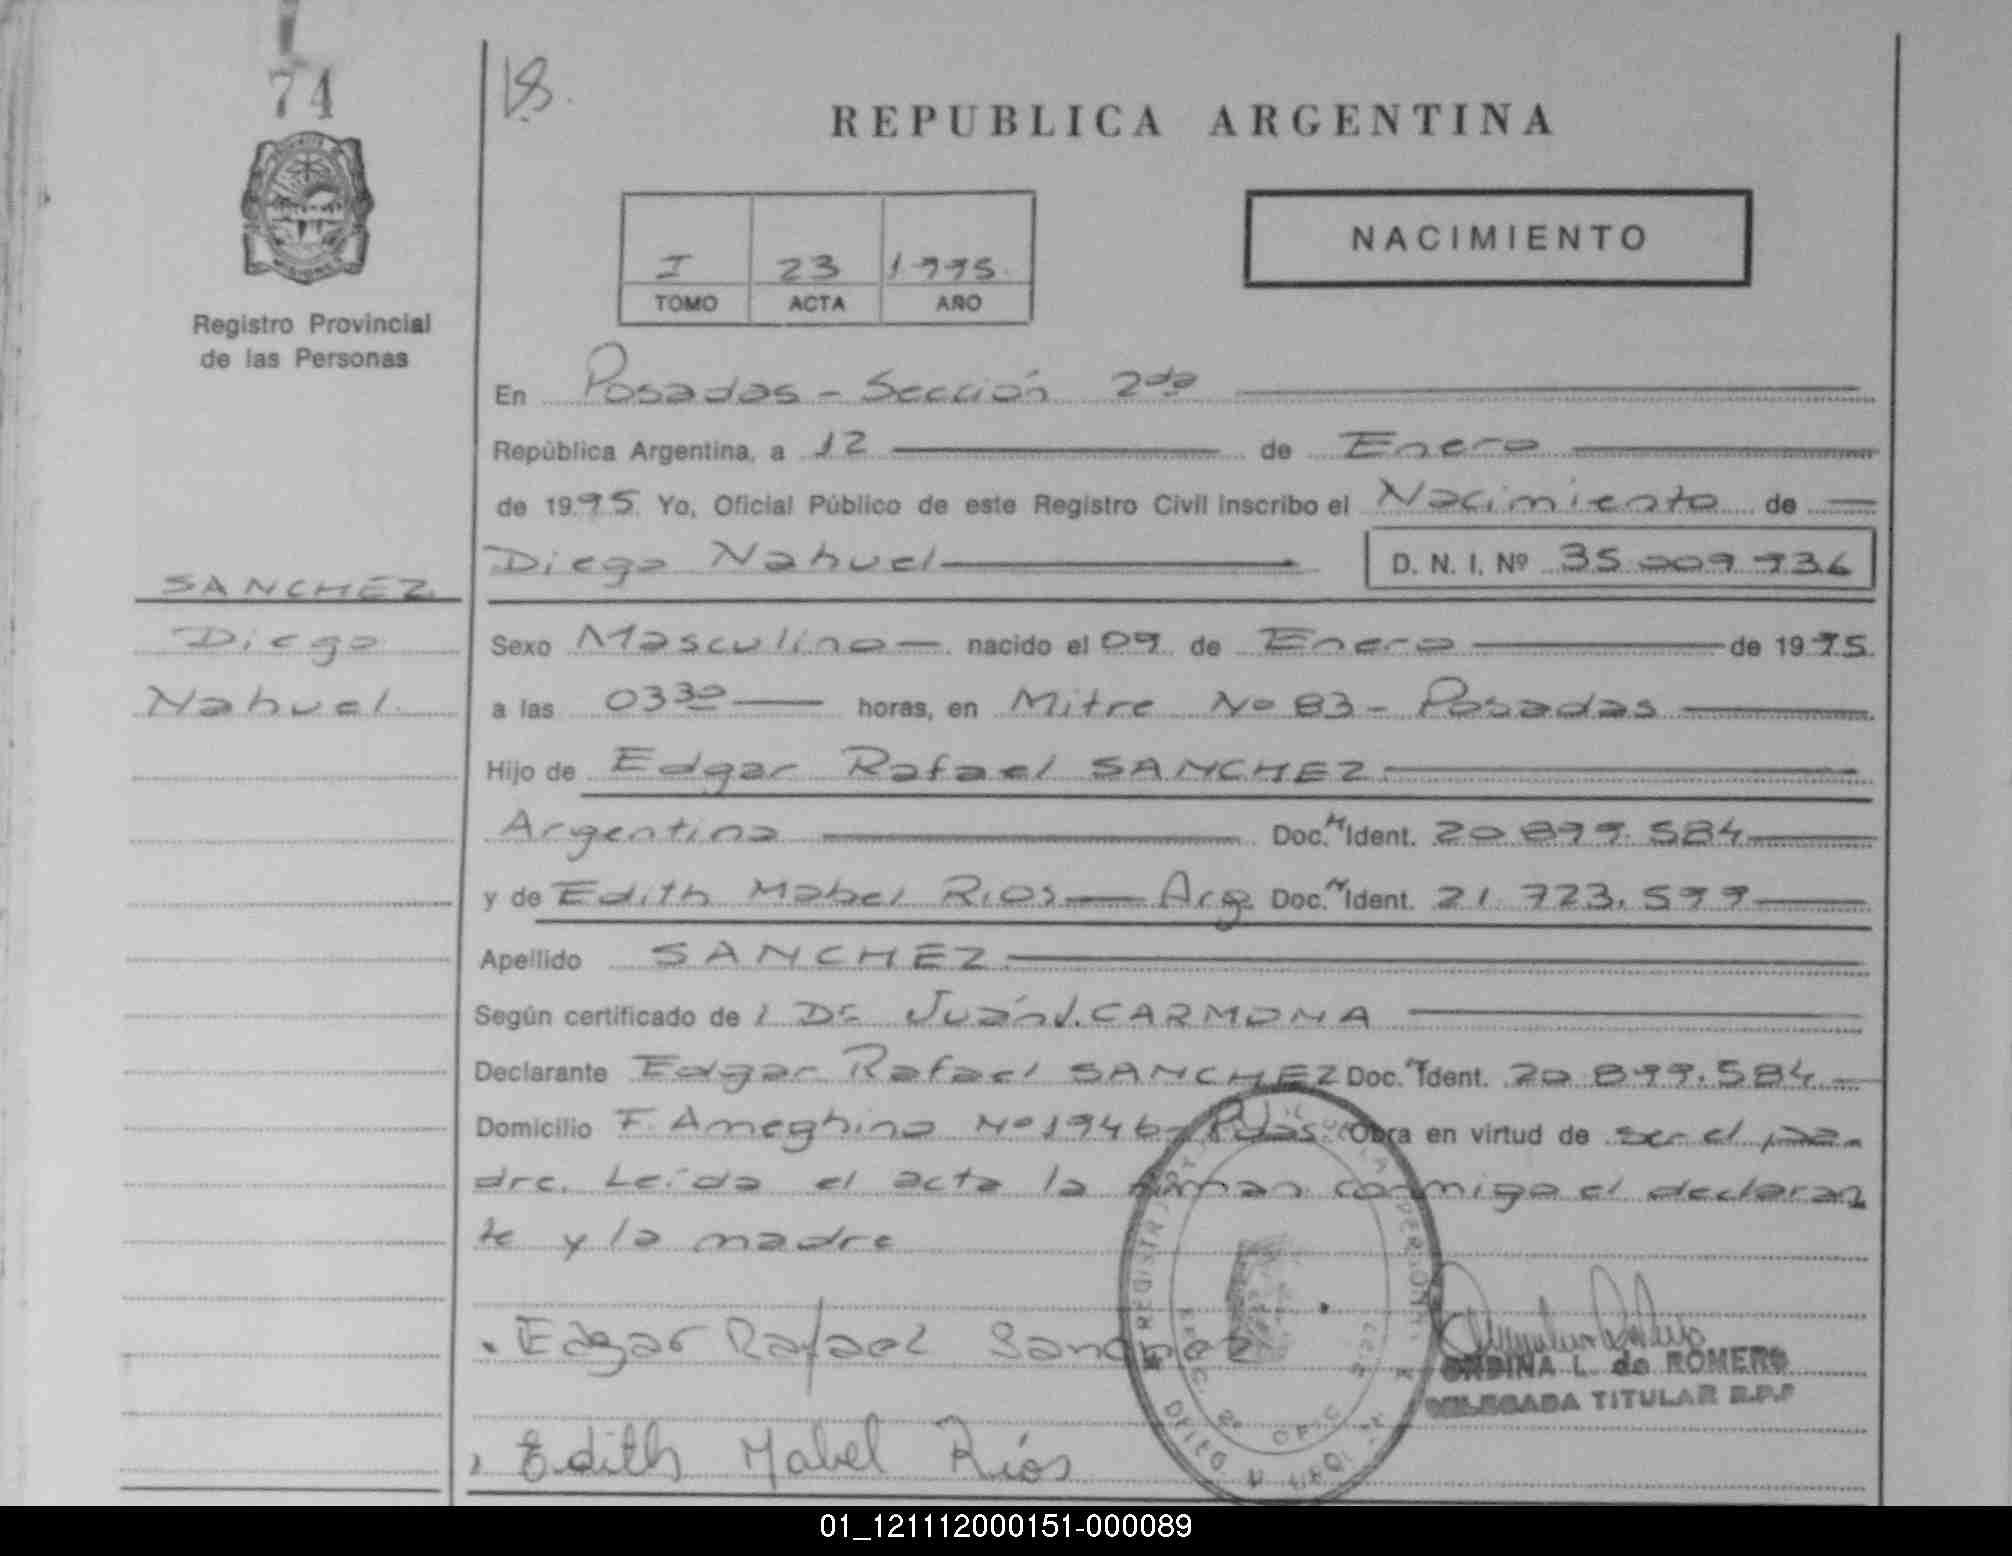 74
REPUBLICA ARGENTINA
NACIMIENTO
I 23 1995
TOMO ACTA AÑO
Registro Provincial
de las Personas
En Posadas - Sección 2da
República Argentina, a 12 de Enero
de 1995. Yo, Oficial Público de este Registro Civil inscribo el Nacimiento de
Diego Nahuel D. N. I. Nº 35 009 936
SANCHEZ
Diego
Nahuel
Sexo Masculino nacido el 09 de Enero de 1995.
a las 0330 horas, en Mitre Nº 83 - Posadas
Hijo de Edgar Rafael SANCHEZ
Argentina Doc. N Ident. 20.899.584
y de Edith Mabel Rios Arg Doc. N Ident. 21.723.599
Apellido SANCHEZ
Según certificado de Dr Juan J. CARMONA
Declarante Edgar Rafael SANCHEZ Doc. N Ident. 20.899.584
Domicilio F. Ameghino Nº 1946 - Pdas. Obra en virtud de ser el pa-
dre. Leída el acta la firman conmigo el declaran
te y la madre
Edgar Rafael Sanchez
ONDINA L. de ROMERO
DELEGADA TITULAR R.P.P
Edith Mabel Ríos
01_121112000151-000089